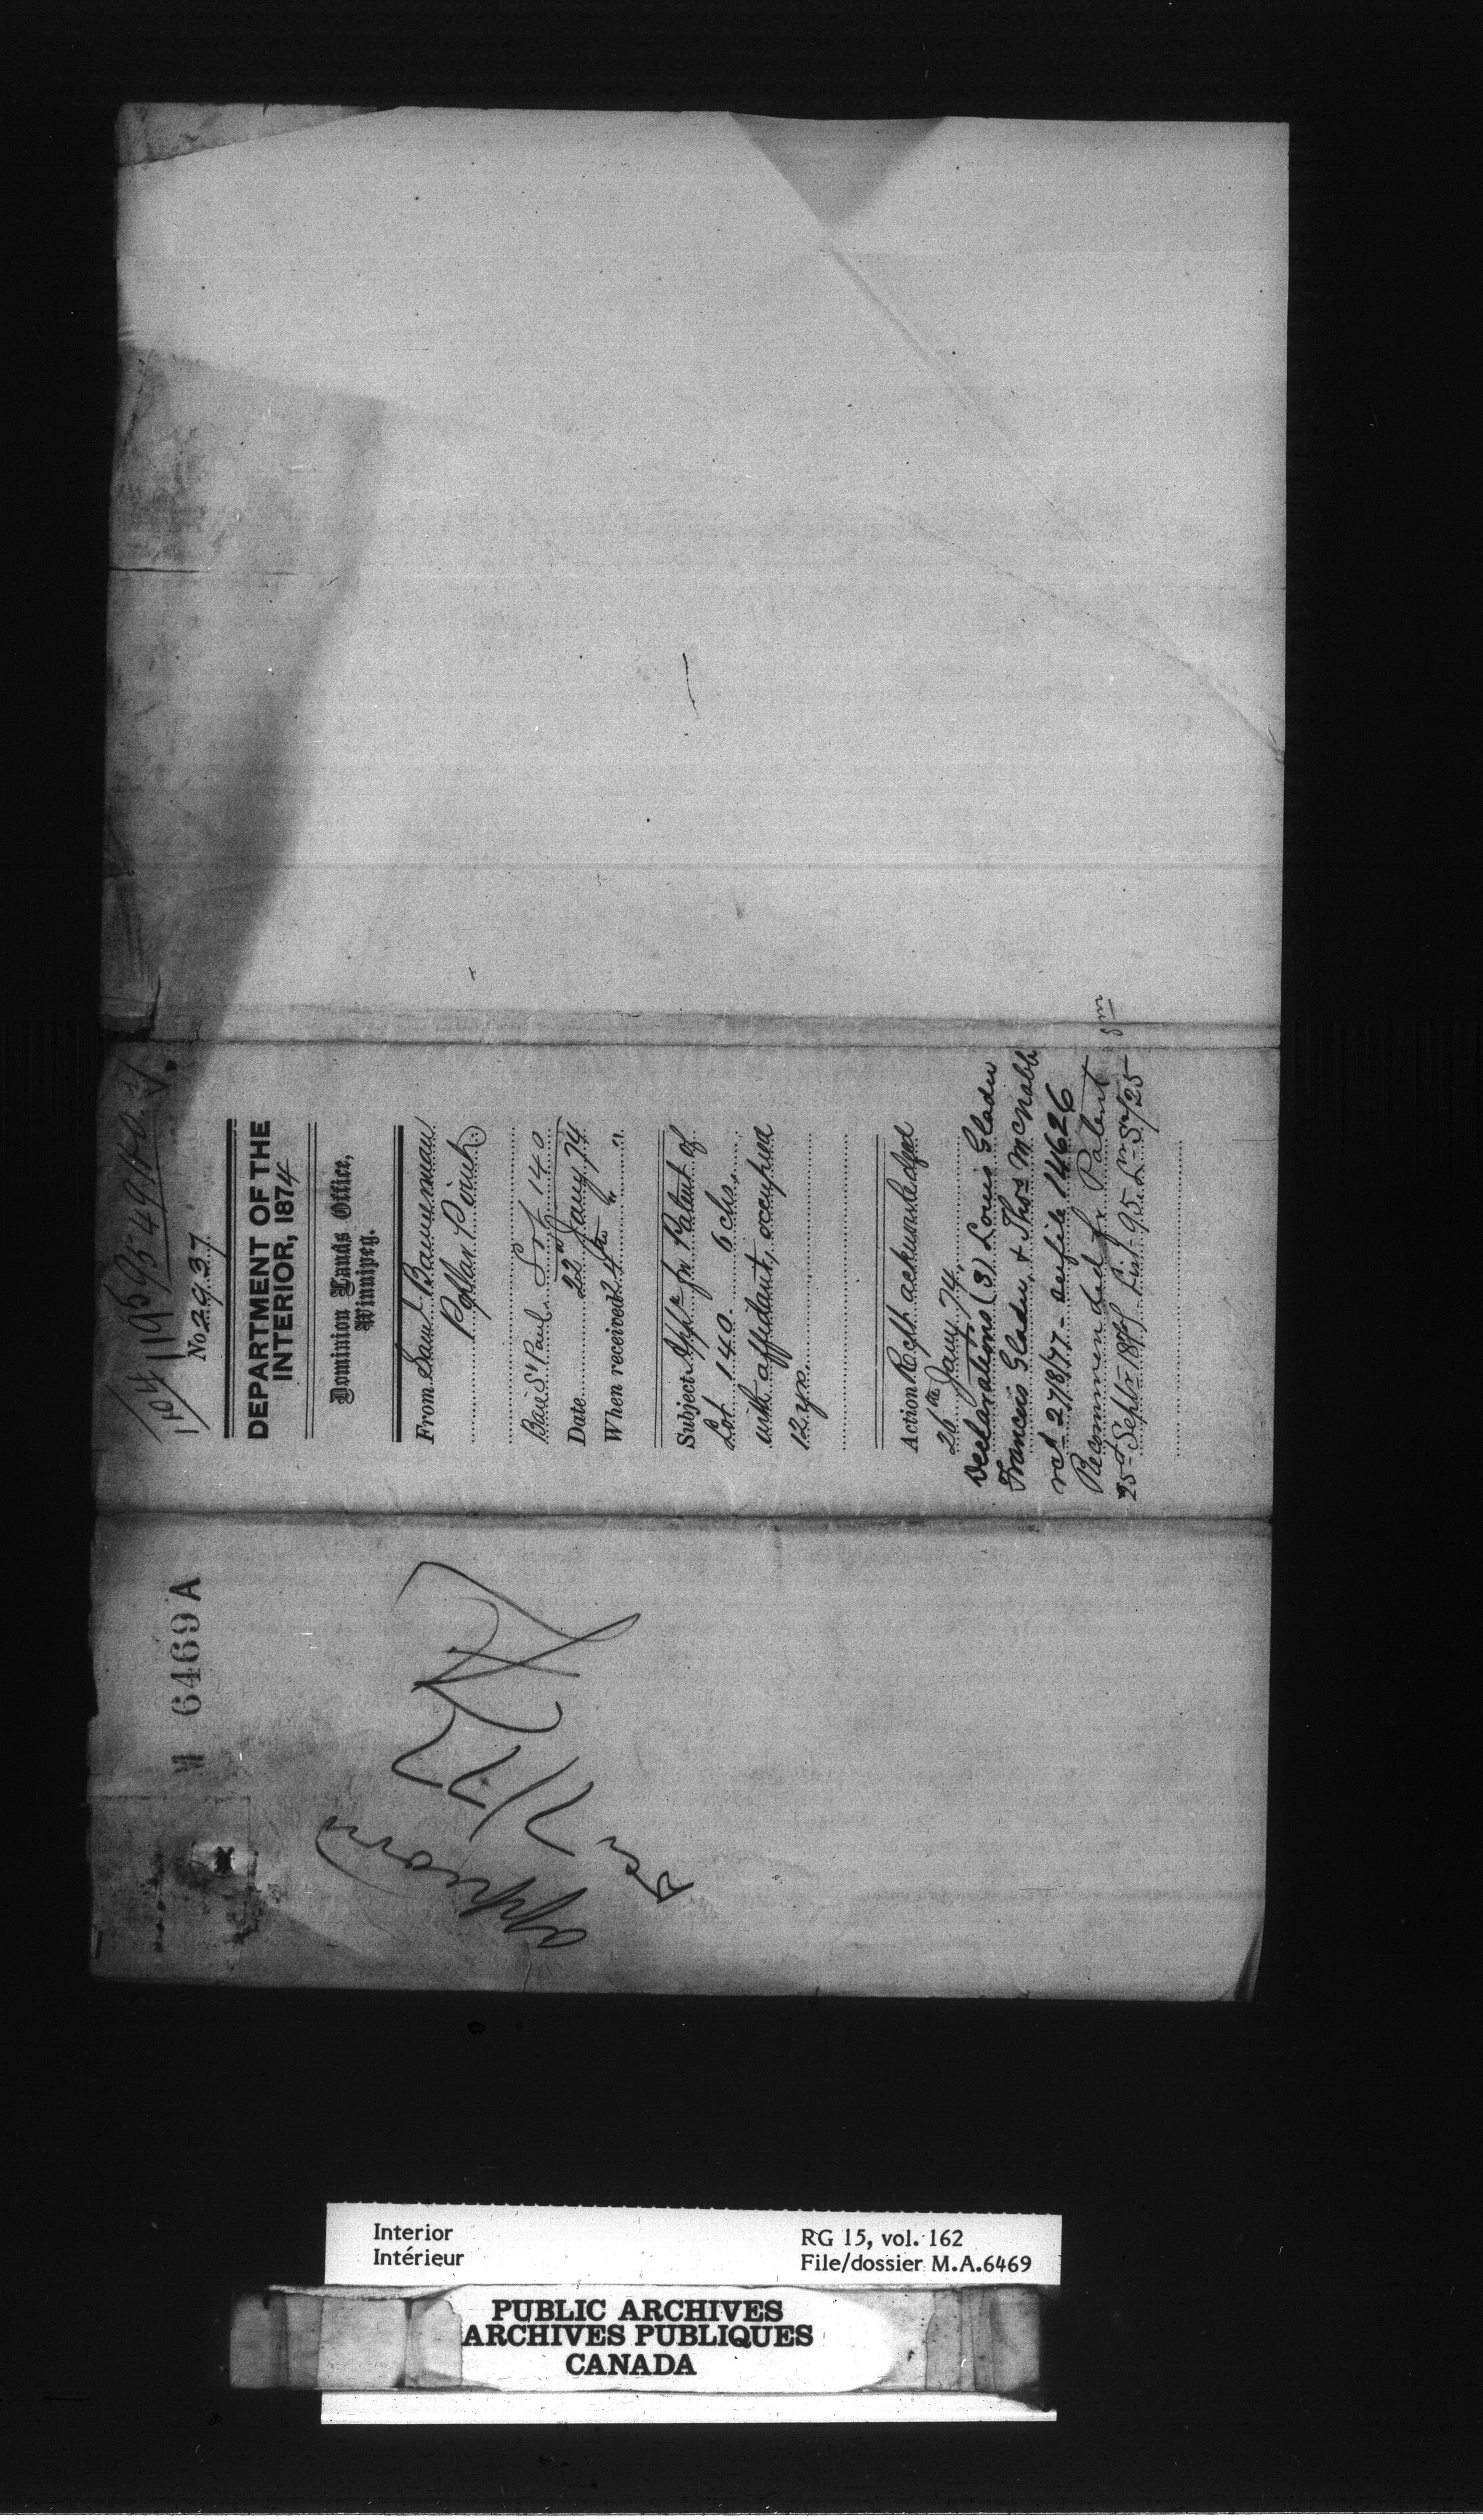 No 2937
DEPARTMENT OF THE
INTERIOR, 1874
Dominion Lands Office,
Winnipeg.
From Saml. Bannerman
Baie St Paul. Lot 140
Date 22nd Jany 74
When received 24th " "
Subject Appln for Patent of
Lot 140. 6 chs.
with affidavit, occupied
12 yrs.
Action Rect acknowledged
26th Jany 74.
Declarations (3) Louis Gladu
Francis Gladu, & Thos McNabb
recd 27/8/77 - on file 14626
Recommended for Patent
25th Septr 1877
M 6469 A
approved
Interior
Intérieur
RG 15, vol. 162
File/dossier M.A.6469
PUBLIC ARCHIVES
ARCHIVES PUBLIQUES
CANADA